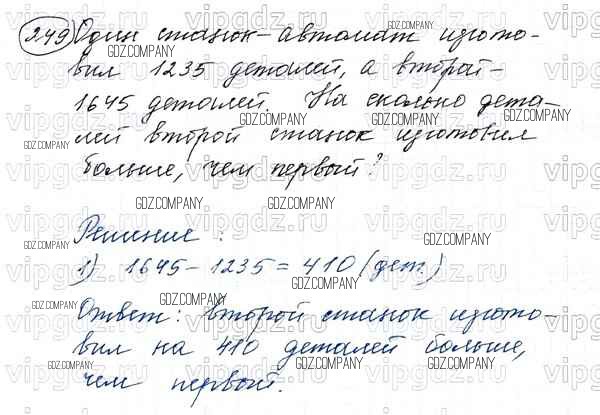 249 Один станок-автомат изгото-
вил 1235 деталей, а второй -
1645 деталей. На сколько дета-
лей второй станок изготовил
больше, чем первый?
Решение:
1) 1645 - 1235 = 410 (дет.)
Ответ: второй станок изгото-
вил на 410 деталей больше,
чем первый.
GDZ.COMPANY
vipgdz.ru